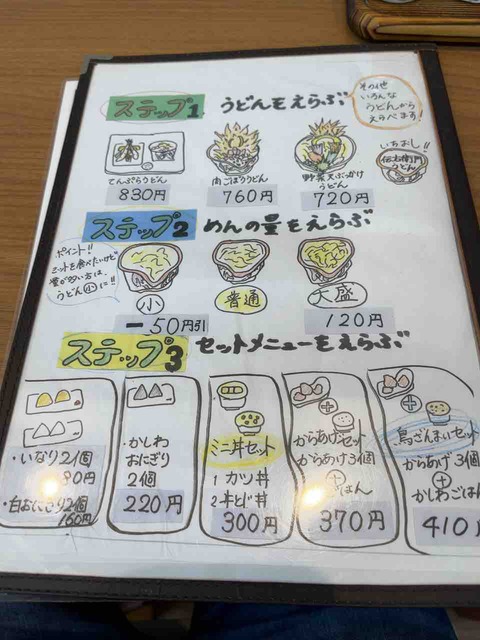 ステップ1 うどんをえらぶ
その他
いろんな
うどんから
えらべます!
いちおし!!
伝右衛門
うどん
てんぷらうどん
830円
肉ごぼううどん
760円
野菜天ぶっかけ
うどん
720円
ステップ2 めんの量をえらぶ
ポイント!!
セットを食べたいけど
量が多い方は、
うどん小に!!
小
普通
大盛
-50円引
120円
ステップ3 セットメニューをえらぶ
・いなり2個
80円
・白おにぎり2個
160円
・かしわ
おにぎり
2個
220円
ミニ丼セット
1 カツ丼
2 本とび丼
300円
からあげセット
からあげ3個
+
ごはん
370円
鳥ざんまいセット
からあげ3個
+
かしわごはん
410円